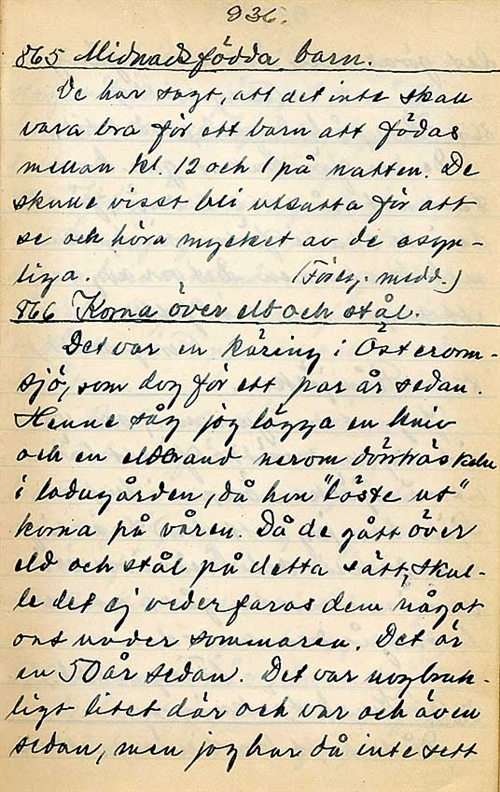 936.
865 Midnadsfödda barn.
De har sagt, att det inte skall
vara bra för ett barn att födas
mellan kl. 12 och 1 på natten. De
skulle visst bli utsatta för att
se och höra mycket av de osyn-
liga. (Föreg. medd.)
866 Korna över eld och stål.
Det var en käring i Österorm-
sjö, som dog för ett par år sedan.
Henne såg jag lägga en kniv
och en eldbrand nerom dörrträskeln
i ladugården, då hon "löste ut"
korna på våren. Då de gått över
eld och stål på detta sätt, skul-
le det ej vederfaras dem något
ont under sommaren. Det är
en 50 år sedan. Det var nog bruk-
ligt litet där och var och även
sedan, men jag har då inte sett